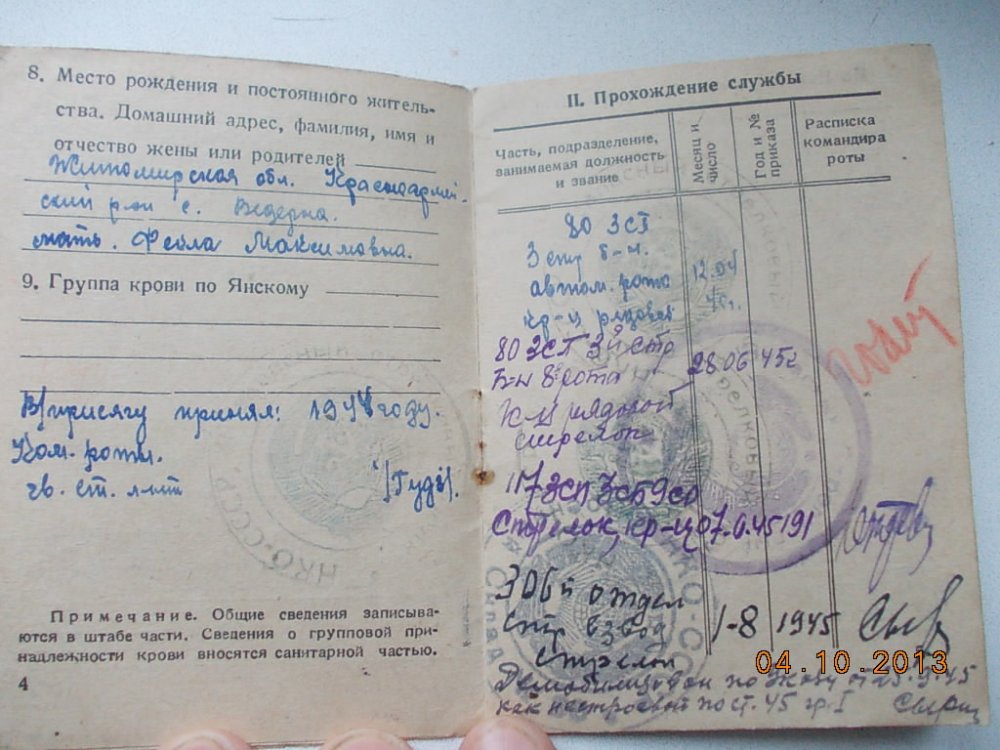 8. Место рождения и постоянного житель-
ства. Домашний адрес, фамилия, имя и
отчество жены или родителей
Житомирская обл. Красноармей-
ский р-он с.
мать. Фекла Максимовна.
9. Группа крови по Янскому
В/присягу принял: 1944 году.
Ком. роты.
гв. ст. л-нт /Гудз/.
Примечание. Общие сведения записыва-
ются в штабе части. Сведения о групповой при-
надлежности крови вносятся санитарной частью.
4
II. Прохождение службы
Часть, подразделение,
занимаемая должность
и звание
Месяц и
число
Год и №
приказа
Расписка
командира
роты
80 ЗСП
3 стр б-н.
автом. рота 12.04
кр-ц рядовой
80 ЗСП 3й стр
б-н 8 рота 28.06 45г
рядовой
стрелок
117 ЗСП
Стрелок, кр-ц 07. 45 191
306й отдел
Стр взвод 1-8 1945
стрелок
Демобилизован по 25.9.45
как нестроевой по ст. 45 гр. I
НКО-СССР
04.10.2013